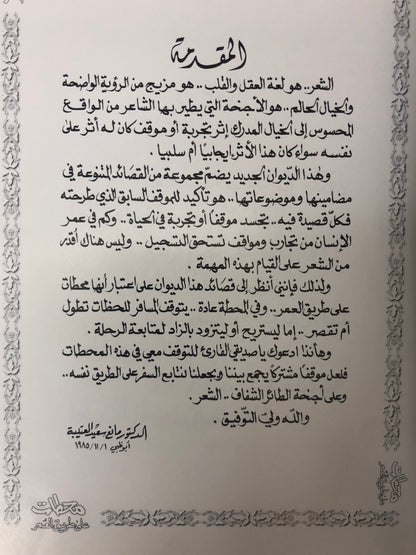 المقدمة
الشعر.. هو لغة العقل والقلب.. هو مزيج من الرؤية الواضحة
والخيال الحالم.. هو الأجنحة التي يطير بها الشاعر من الواقع
المحسوس إلى الخيال المدرك إثر تجربة أو موقف كان له أثر على
نفسه سواء كان هذا الأثر إيجابيا أم سلبيا.
وهذا الديوان الجديد يضم مجموعة من القصائد المتنوعة في
مضامينها وموضوعاتها.. هو تأكيد للموقف السابق الذي طرحته
فكل قصيدة فيه.. تجسد موقفا أو تجربة في الحياة.. وكم في عمر
الإنسان من تجارب ومواقف تستحق التسجيل.. وليس هناك أقدر
من الشعر على القيام بهذه المهمة.
ولذلك فإنني أنظر إلى قصائد هذا الديوان على اعتبار أنها محطات
على طريق العمر.. وفي المحطة عادة.. يتوقف المسافر للحظات تطول
أم تقصر.. إما ليستريح أو ليتزود بالزاد لمتابعة الرحلة.
وهأنذا ادعوك يا صديقي القارئ للتوقف معي في هذه المحطات
فلعل موقفا مشتركا يجمع بيننا ويجعلنا نتابع السفر على الطريق نفسه..
وعلى أجنحة الطائر الشفاف.. الشعر.
والله ولي التوفيق.
الدكتور مانع سعيد العتيبة
أبوظبي ١٩٨٥/١١/٦
محطات
على طريق العمر